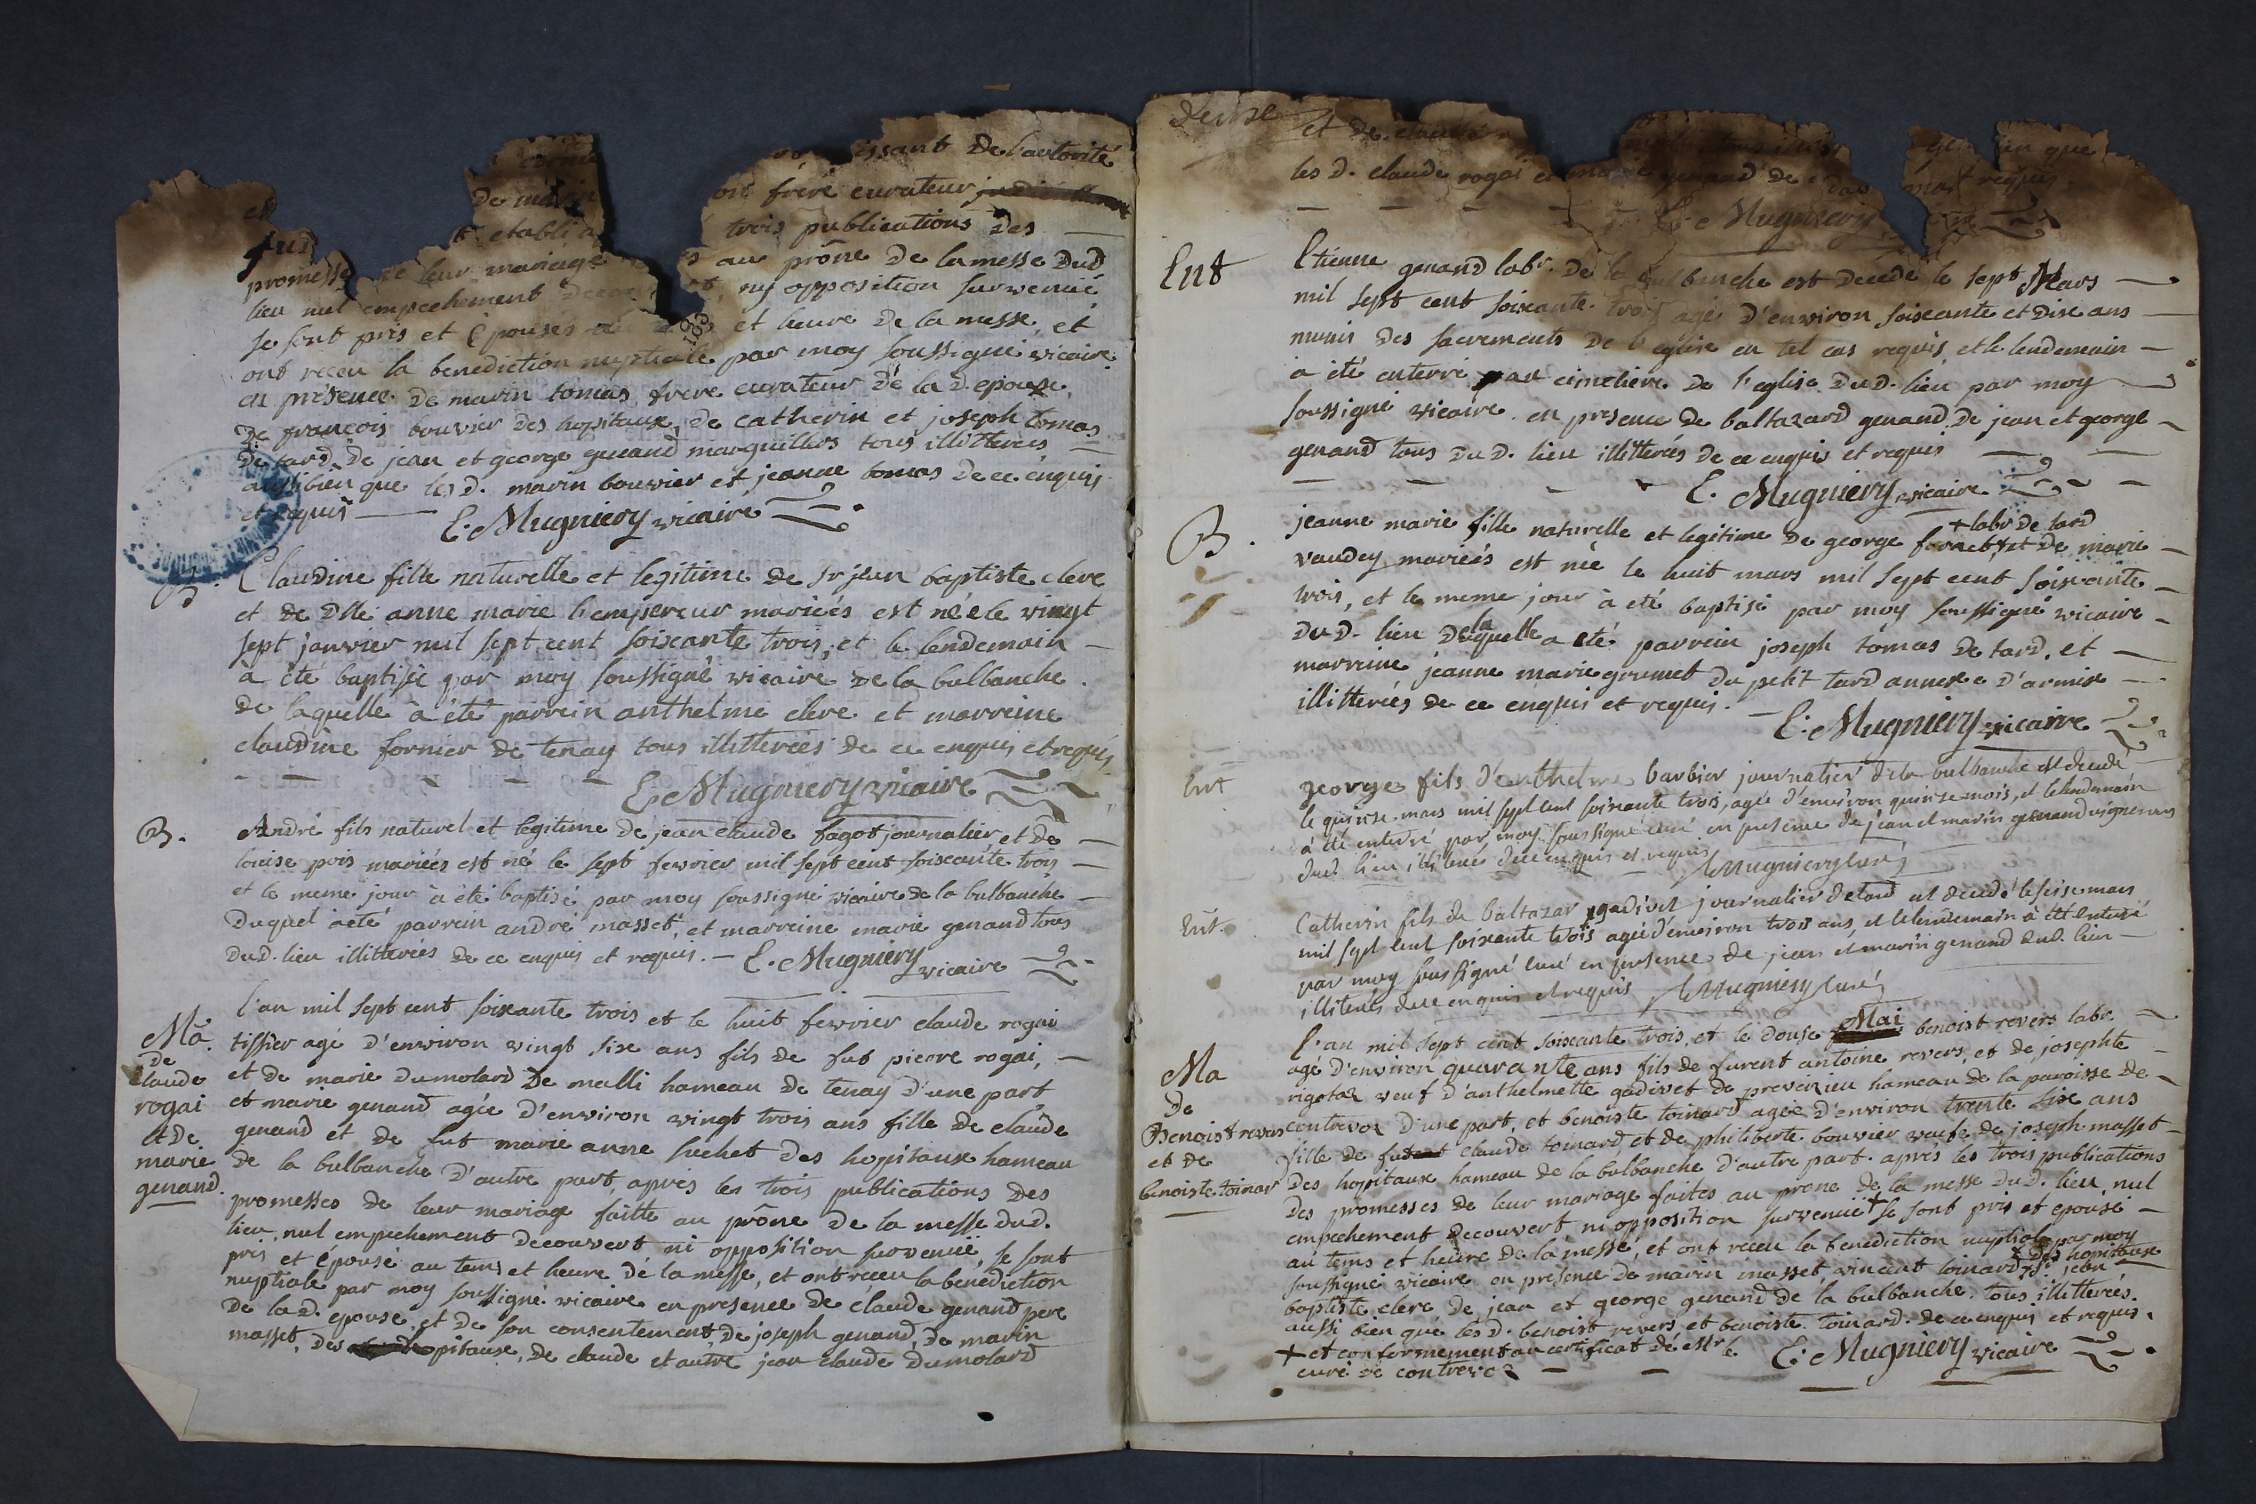 issant de l'autorité
de marin on frère curateur
établi trois publications des
promesse de leur mariage au prône de la messe dud
lieu nul empechement ny opposition survenue,
se sont pris et épousés et heure de la messe, et
ont receu la benediction nuptiale par moy soussigné vicaire
en présence de marin tomas frere curateur de la d epouse,
de francois bouvier des hopitaux, de catherin et joseph tomas
de tard, de jean et george genand marguillers tous illitterés
aussi bien que les d. marin bouvier et jeanne tomas de ce enquis
et requis E. Mugniery vicaire
B. Claudine fille naturelle et legitime de sr jean baptiste clerc
et de dlle anne marie l'empereur mariées est née le vingt
sept janvier mil sept cent soixante trois, et le lendemain
à été baptisée par moy soussigné vicaire de la balbanche.
de laquelle à été parrein anthelme clerc et marreine
claudine fornier de tenay tous illitterées de ce enquis et requis,
E. Mugniery vicaire
B. André fils naturel et legitime de jean claude fagot journalier et de
louise pois mariées est né le sept fevrier mil sept cent soixante trois
et le meme jour à été baptisé par moy soussigné vicaire de la balbanche
duquel à été parrein andré masset, et marreine marie genand tous
dud. lieu illitterées de ce enquis et requis. E. Mugniery
vicaire
Ma.
de
claude
rogai
et de
marie
genand.
l'an mil sept cent soixante trois et le huit fevrier claude rogai
tissier agé d'environ vingt six ans fils de fut pierre rogai,
et de marie dumolard de malli hameau de tenay d'une part
et marie genand agée d'environ vingt trois ans fille de claude
genand et de fut marie anne suchet des hopitaux hameau
de la balbanche d'autre part, apres les trois publications des
promesses de leur mariage faitte au prône de la messe dud.
lieu, nul empechement decouvert ni opposition survenuë, se sont
pris et épousé au tems et heure de la messe, et ont receu la benediction
nuptiale par moy soussigné vicaire en presence de claude genand pere
de la d. epouse, et de son consentement de joseph genand, de marin
masset, des hopitaux, de claude et autre jean claude dumolard
et de claude
les d. claude rogai et marie genand de ce requis
E. Mugniery
Ent Etienne genand labr. de la balbanche est decedé le sept Mars
mil sept cent soixante trois agé d'environ soixante et dix ans
munis des sacrements de l'eglise en tel cas requis, et le lendemain
à été enterré au cimetiere de l'eglise dud. lieu par moy
soussigné vicaire en presence de baltazard genand, de jean et george
genand tous dud. lieu illitterés de ce enquis et requis
E. Mugniery vicaire
+ labr de tard
B. jeanne marie fille naturelle et legitime de george fornet + et de marie
vaudey mariées est née le huit mars mil sept cent soixante
trois, et le meme jour à été baptisé par moy soussigné vicaire
dud. lieu de laquelle a été parrein joseph tomas de tard, et
marreine jeanne marie grumet du petit tard annexe d'armix
illitterées de ce enquis et requis.
E. Mugniery vicaire
Ent george fils d'anthelme barbier journalier de la balbanche est decedé
le quinze mars mil sept cent soixante trois, agée d'environ quinze mois, et le lendemain
à été enterré par moy soussigné curé en presence de jean et marin genand vignerons
dud. lieu illiterés de ce enquis et requis Mugniery curé
Ent. Catherin fils de baltazar gadivet journalier de tard est decedé le seise mars
mil sept cent soixante trois agée d'environ trois ans, et le lendemain à été enterré
par moy soussigné curé en presence de jean et marin genand dud. lieu
illiterés de ce enquis et requis Mugniery curé
Ma
de
Benoist revers
et de
benoiste toinar
l'an mil sept cent soixante trois, et le douse Mai benoist revers labr.
agé d'environ quarante ans fils de furent antoine revers, et de josephte
rigotaz veuf d'anthelmette gadivet de preverieu hameau de la paroisse de
contrevoz d'une part, et benoiste toinard agée d'environ trente six ans
fille de fut claude toinard et de philiberte bouvier veufe de joseph masset
des hopitaux hameau de la balbanche d'autre part. apres les trois publications
des promesses de leur mariage faites au prone de la messe dud. lieu, nul
empechement decouvert ni opposition survenuë + se sont pris et epousé
au tems et heure de la messe, et ont receu la benediction nuptiale par moy
soussigné vicaire en présence de marin masset, vincent toinard des hopitaux jean
baptiste clerc de jean et george genand de la balbanche, tous illitterées.
aussi bien que les d. benoist revers et benoiste toinard de ce enquis et requis.
+ et conformement au certificat de
curé de contrevoz E. Mugniery vicaire